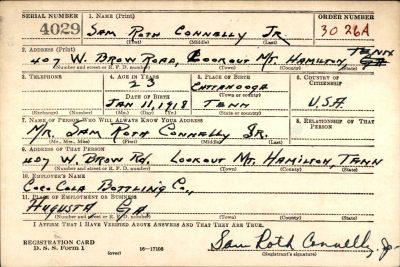 SERIAL NUMBER 1. NAME (Print) ORDER NUMBER
4029 SAM ROTH CONNELLY JR. 3026A
2. ADDRESS (Print) TENN
407 W. BROW ROAD, LOOKOUT MT. HAMILTON, GA
(Number and street or R. F. D. number) (Town) (County) (State)
3. TELEPHONE 4. AGE IN YEARS 5. PLACE OF BIRTH 6. COUNTRY OF CITIZENSHIP
23 CHATTANOOGA
DATE OF BIRTH (Town or county)
JAN 11, 1918 TENN U.S.A.
(Exchange) (Number) (Mo.) (Day) (Yr.) (State or country)
7. NAME OF PERSON WHO WILL ALWAYS KNOW YOUR ADDRESS 8. RELATIONSHIP OF THAT PERSON
MR. SAM ROTH CONNELLY SR.
(Mr., Mrs., Miss) (First) (Middle) (Last)
9. ADDRESS OF THAT PERSON
407 W. BROW RD, LOOKOUT MT, HAMILTON, TENN
(Number and street or R. F. D. number) (Town) (County) (State)
10. EMPLOYER'S NAME
COCO COLA BOTTLING CO.,
11. PLACE OF EMPLOYMENT OR BUSINESS
AUGUSTA GA
(Number and street or R. F. D. number) (Town) (County) (State)
I AFFIRM THAT I HAVE VERIFIED ABOVE ANSWERS AND THAT THEY ARE TRUE.
REGISTRATION CARD
D. S. S. Form 1 (over) 16—17105 Sam Roth Connelly, Jr.
(Registrant's signature)